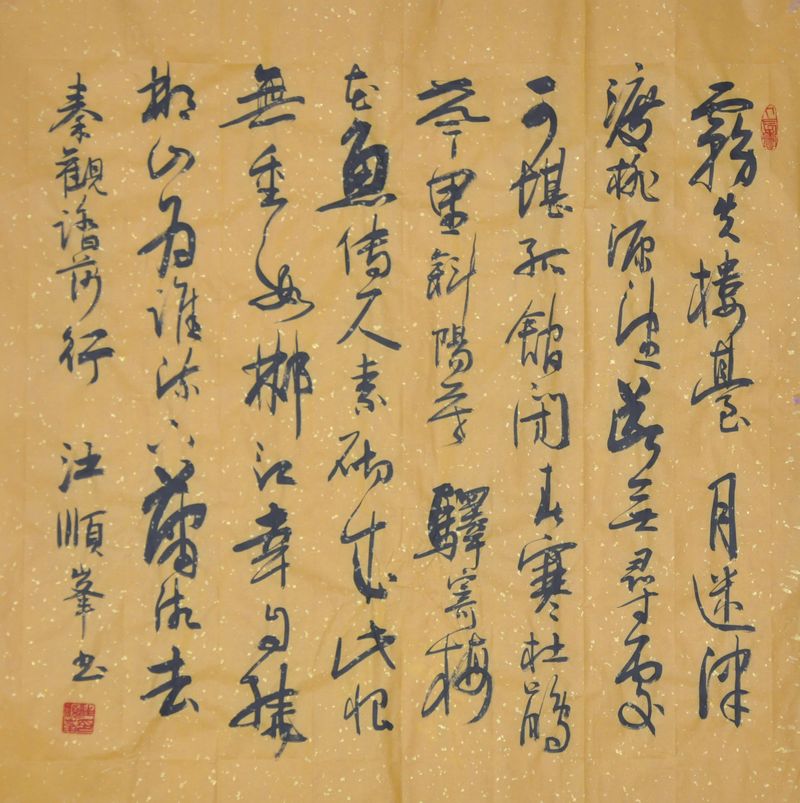 霧失樓臺月迷津
渡桃源望断无尋處
可堪孤館閉春寒杜鵑
聲里斜陽暮驛寄梅
花魚傳尺素砌成此恨
無重數郴江幸自繞
郴山為誰流下瀟湘去
秦觀踏莎行 汪順峯书